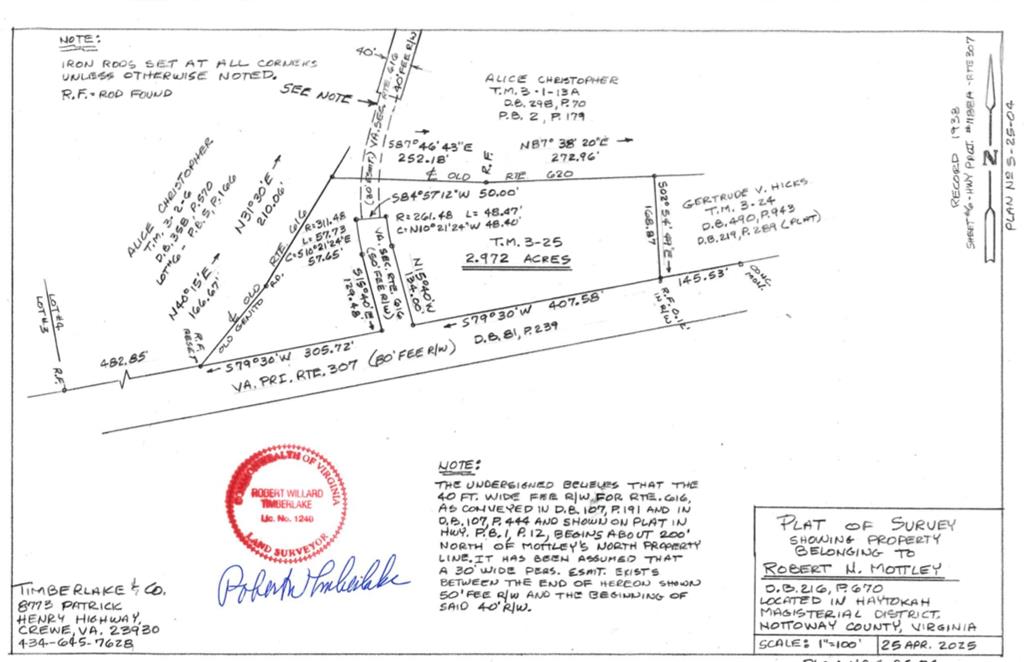 NOTE:
IRON RODS SET AT ALL CORNERS
UNLESS OTHERWISE NOTED.
R.F. - ROD FOUND
40'
40' FEE R/W
SEE NOTE
VA. SEC. RTE. 616
(30' ESMT.)
ALICE CHRISTOPHER
T.M. 3-1-13A
D.B. 298, P. 70
P.B. 2, P. 179
S87°46'43"E
252.18'
R.F.
N87°38'20"E
272.96'
℄ OLD RTE 620
RECORD 1938
SHEET #6 - HWY PROJ. #1188EA - RTE 307
N
PLAN NO S-25-04
ALICE CHRISTOPHER
T.M. 3-2-6
D.B. 358, P. 570
LOT #6 - P.B. 5, P. 166
N31°30'E
210.06'
N40°15'E
166.67'
℄ OLD RTE 616
OLD GENITO RD.
R=311.48
L=57.73
C=S10°21'24"E
57.65'
S84°57'12"W 50.00'
R=261.48 L=48.47'
C=N10°21'24"W 48.40'
T.M. 3-25
2.972 ACRES
S02°54'49"E
168.87
GERTRUDE V. HICKS
T.M. 3-24
D.B. 490, P. 943
D.B. 219, P. 289 (PLAT)
VA. SEC. RTE. 616
(50' FEE R/W)
S15°40'E
129.48
N15°40'W
134.00'
S79°30'W 407.58'
145.53'
CONC.
MON.
R.F. 0.12'
IN R/W
LOT #4
LOT #3
R.F.
482.85'
R.F.
RESET
S79°30'W 305.72'
VA. PRI. RTE. 307 (80' FEE R/W) D.B. 81, P. 239
COMMONWEALTH OF VIRGINIA
ROBERT WILLARD
TIMBERLAKE
Lic. No. 1240
LAND SURVEYOR
Robert W Timberlake
NOTE:
THE UNDERSIGNED BELIEVES THAT THE
40 FT. WIDE FEE R/W FOR RTE. 616,
AS CONVEYED IN D.B. 107, P. 191 AND IN
D.B. 107, P. 444 AND SHOWN ON PLAT IN
HWY. P.B. 1, P. 12, BEGINS ABOUT 200'
NORTH OF MOTTLEY'S NORTH PROPERTY
LINE. IT HAS BEEN ASSUMED THAT
A 30' WIDE PERS. ESMT. EXISTS
BETWEEN THE END OF HEREON SHOWN
50' FEE R/W AND THE BEGINNING OF
SAID 40' R/W.
TIMBERLAKE & CO.
8773 PATRICK
HENRY HIGHWAY,
CREWE, VA. 23930
434-645-7628
PLAT OF SURVEY
SHOWING PROPERTY
BELONGING TO
ROBERT N. MOTTLEY
D.B. 216, P. 670
LOCATED IN HAYTOKAH
MAGISTERIAL DISTRICT,
NOTTOWAY COUNTY, VIRGINIA
SCALE: 1"=100'
25 APR. 2025